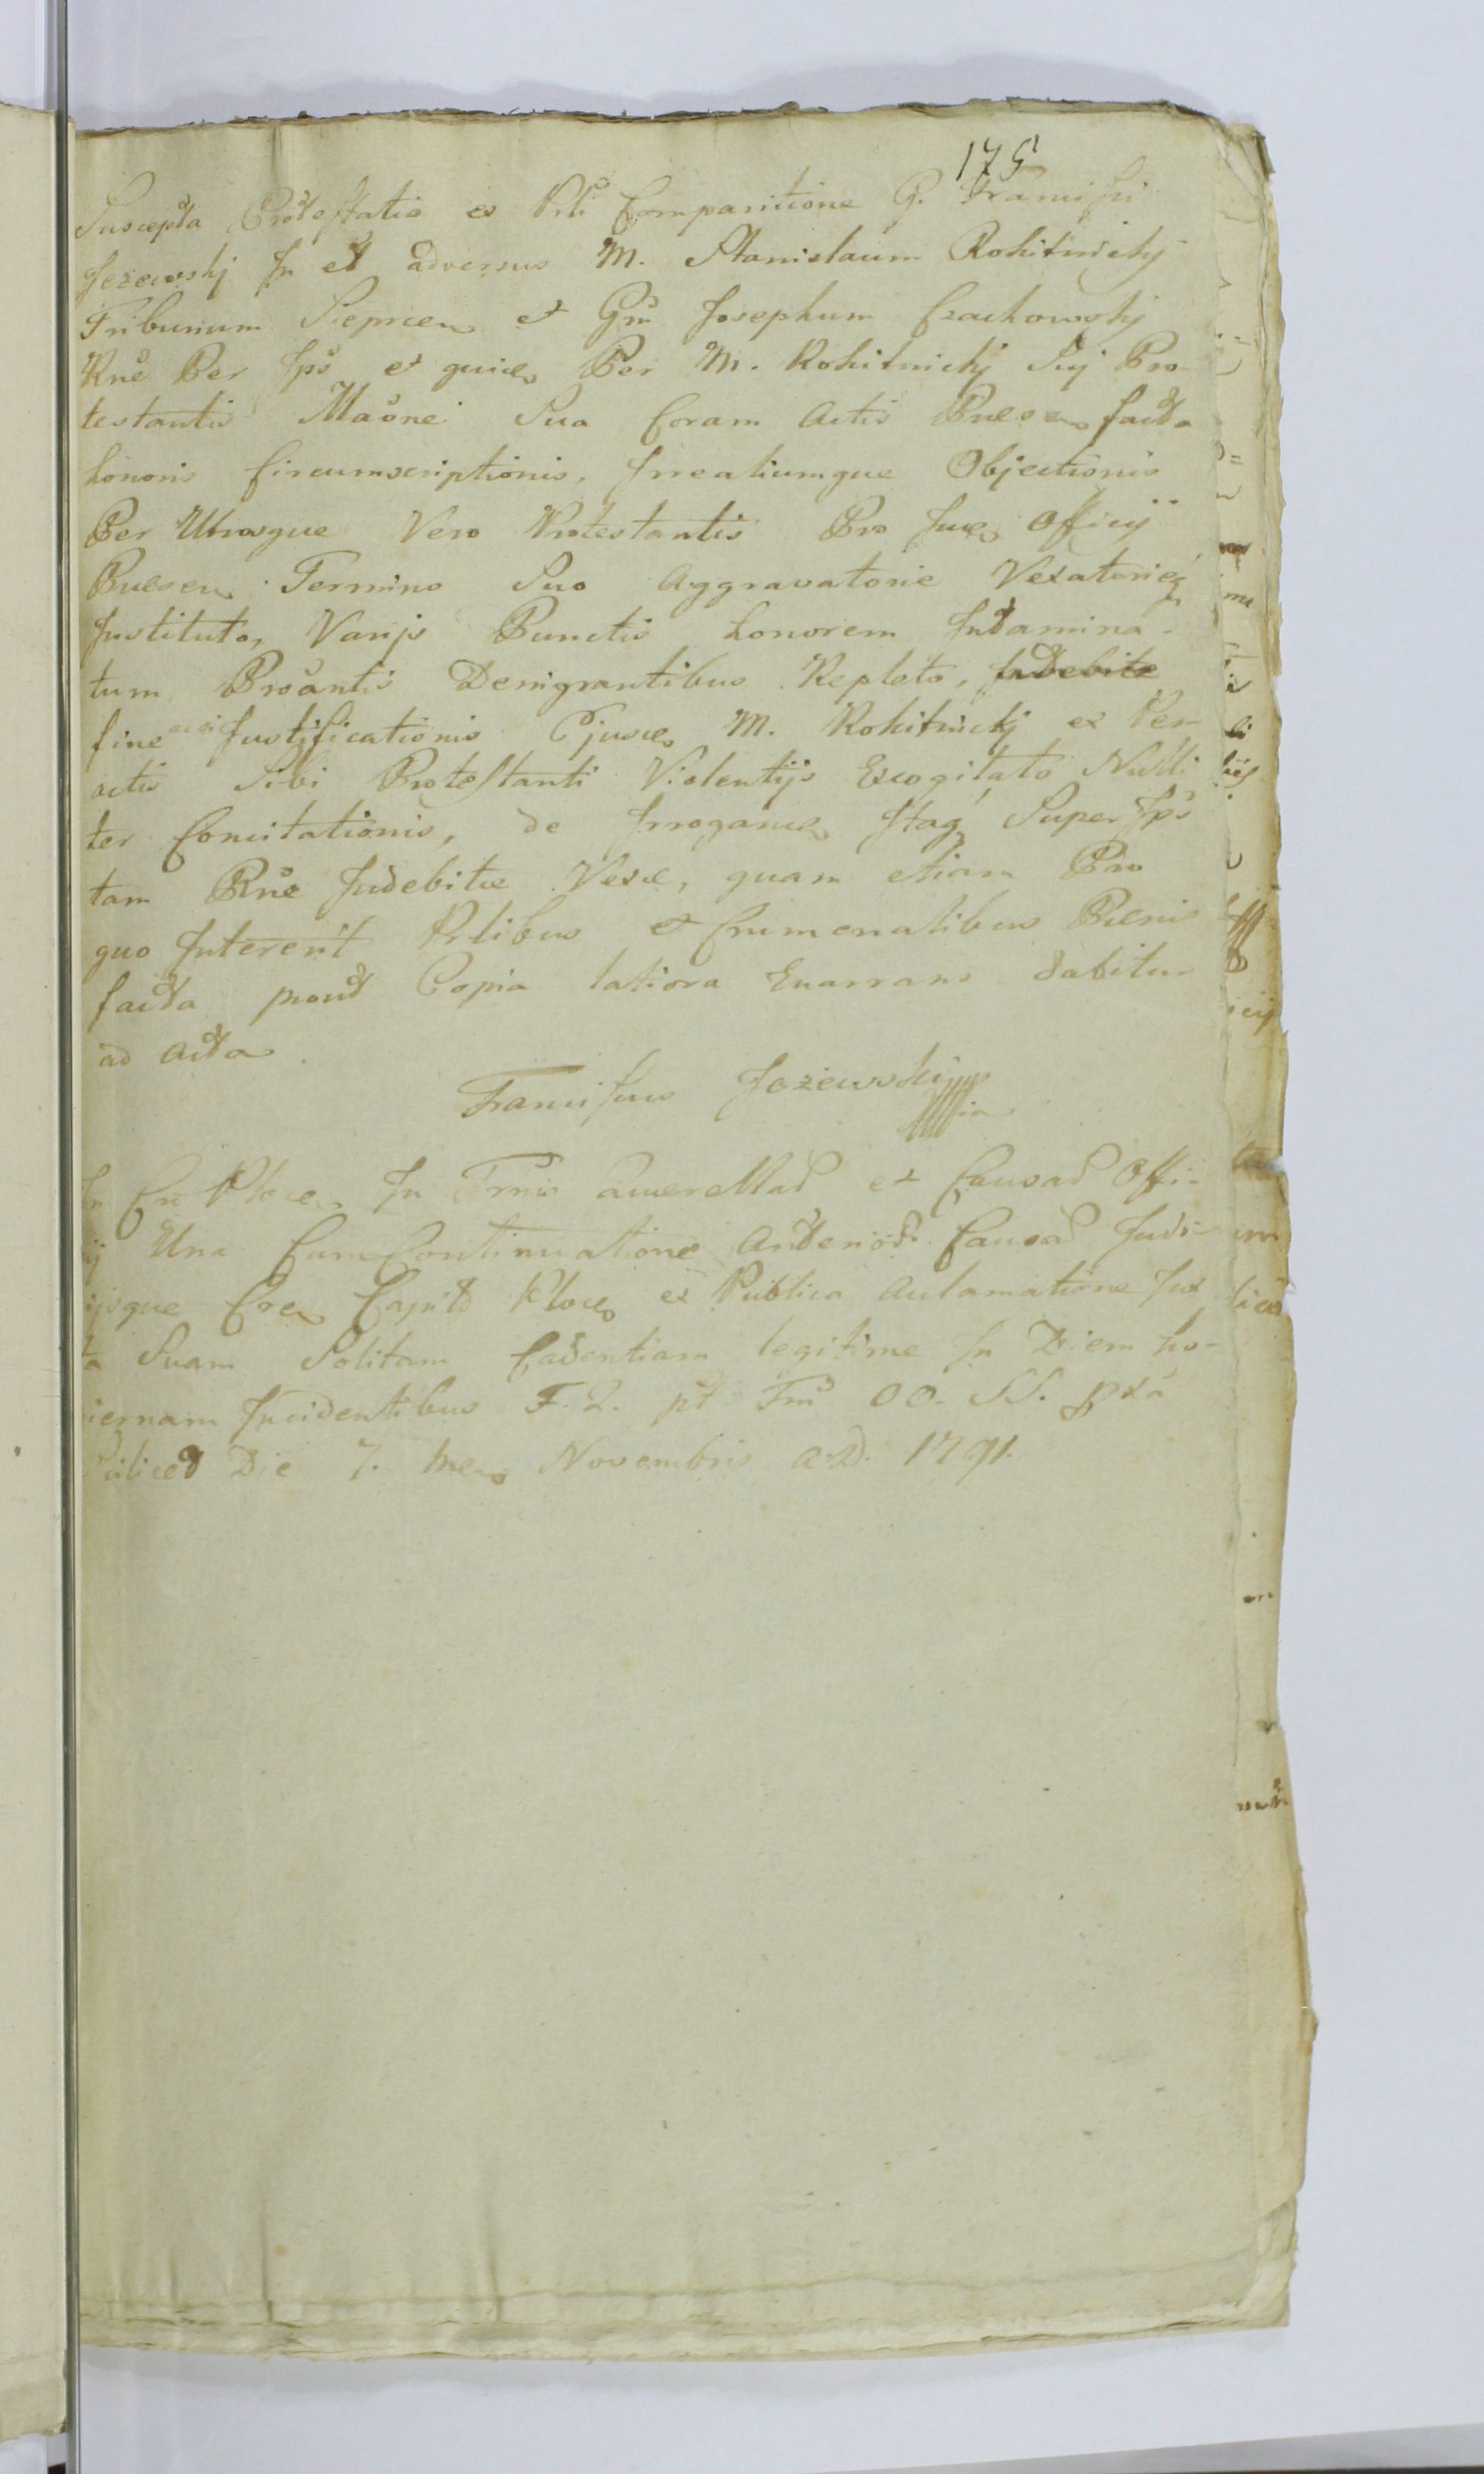 175
Suscepta Protestatio ex Prli Comparitione G. Francisci
Jeżewskj In et adversus M. Stanislaum Rokitnickj
Tribunum Sieprcen et Gm Josephum Czachowskj
Rne Per Ips et quide Per M. Rokitnickj Suj Pro-
testantis Maone Sua Coram Actis Praesen facta
honoris Circumscriptionis, Irrealiumque Objectionis
Per Utrosque Vero Protestantis Pro Officij
Praesen Termino Suo Aggravatorie Vexatorieq
Instituto, Varijs Punctis honorem Indamina-
tum Proantis Denigrantibus Repleto, Indebite
fine Justificationis Ejusde M. Rokitnickj ex Per
actis Sibi Protestanti Violentijs Excogitato Nulli
ter Concitationis, de Irrogan Itaq Super Ips
tam Rne Indebitae Vexae, quam etiam Pro
quo Intererit Prlibus et Crumenalibus Paenis
facta prout Copia latiora Enarrans dabitur
ad Acta
Franciscus Jeżewski
In Cu Ploce In Trnis Querellad et Causad Offi-
ij Una Cum Continuatione Causad Judi-
ijsque Cre Capitd Ploce ex Publica Aclamatione Jux
ta Suam Solitam Cadentiam legitime In Diem ho-
iernam Incidentibus F. 2. pt Fm OO. SS. pxa
Die 7. Mens Novembris A.D. 1791.